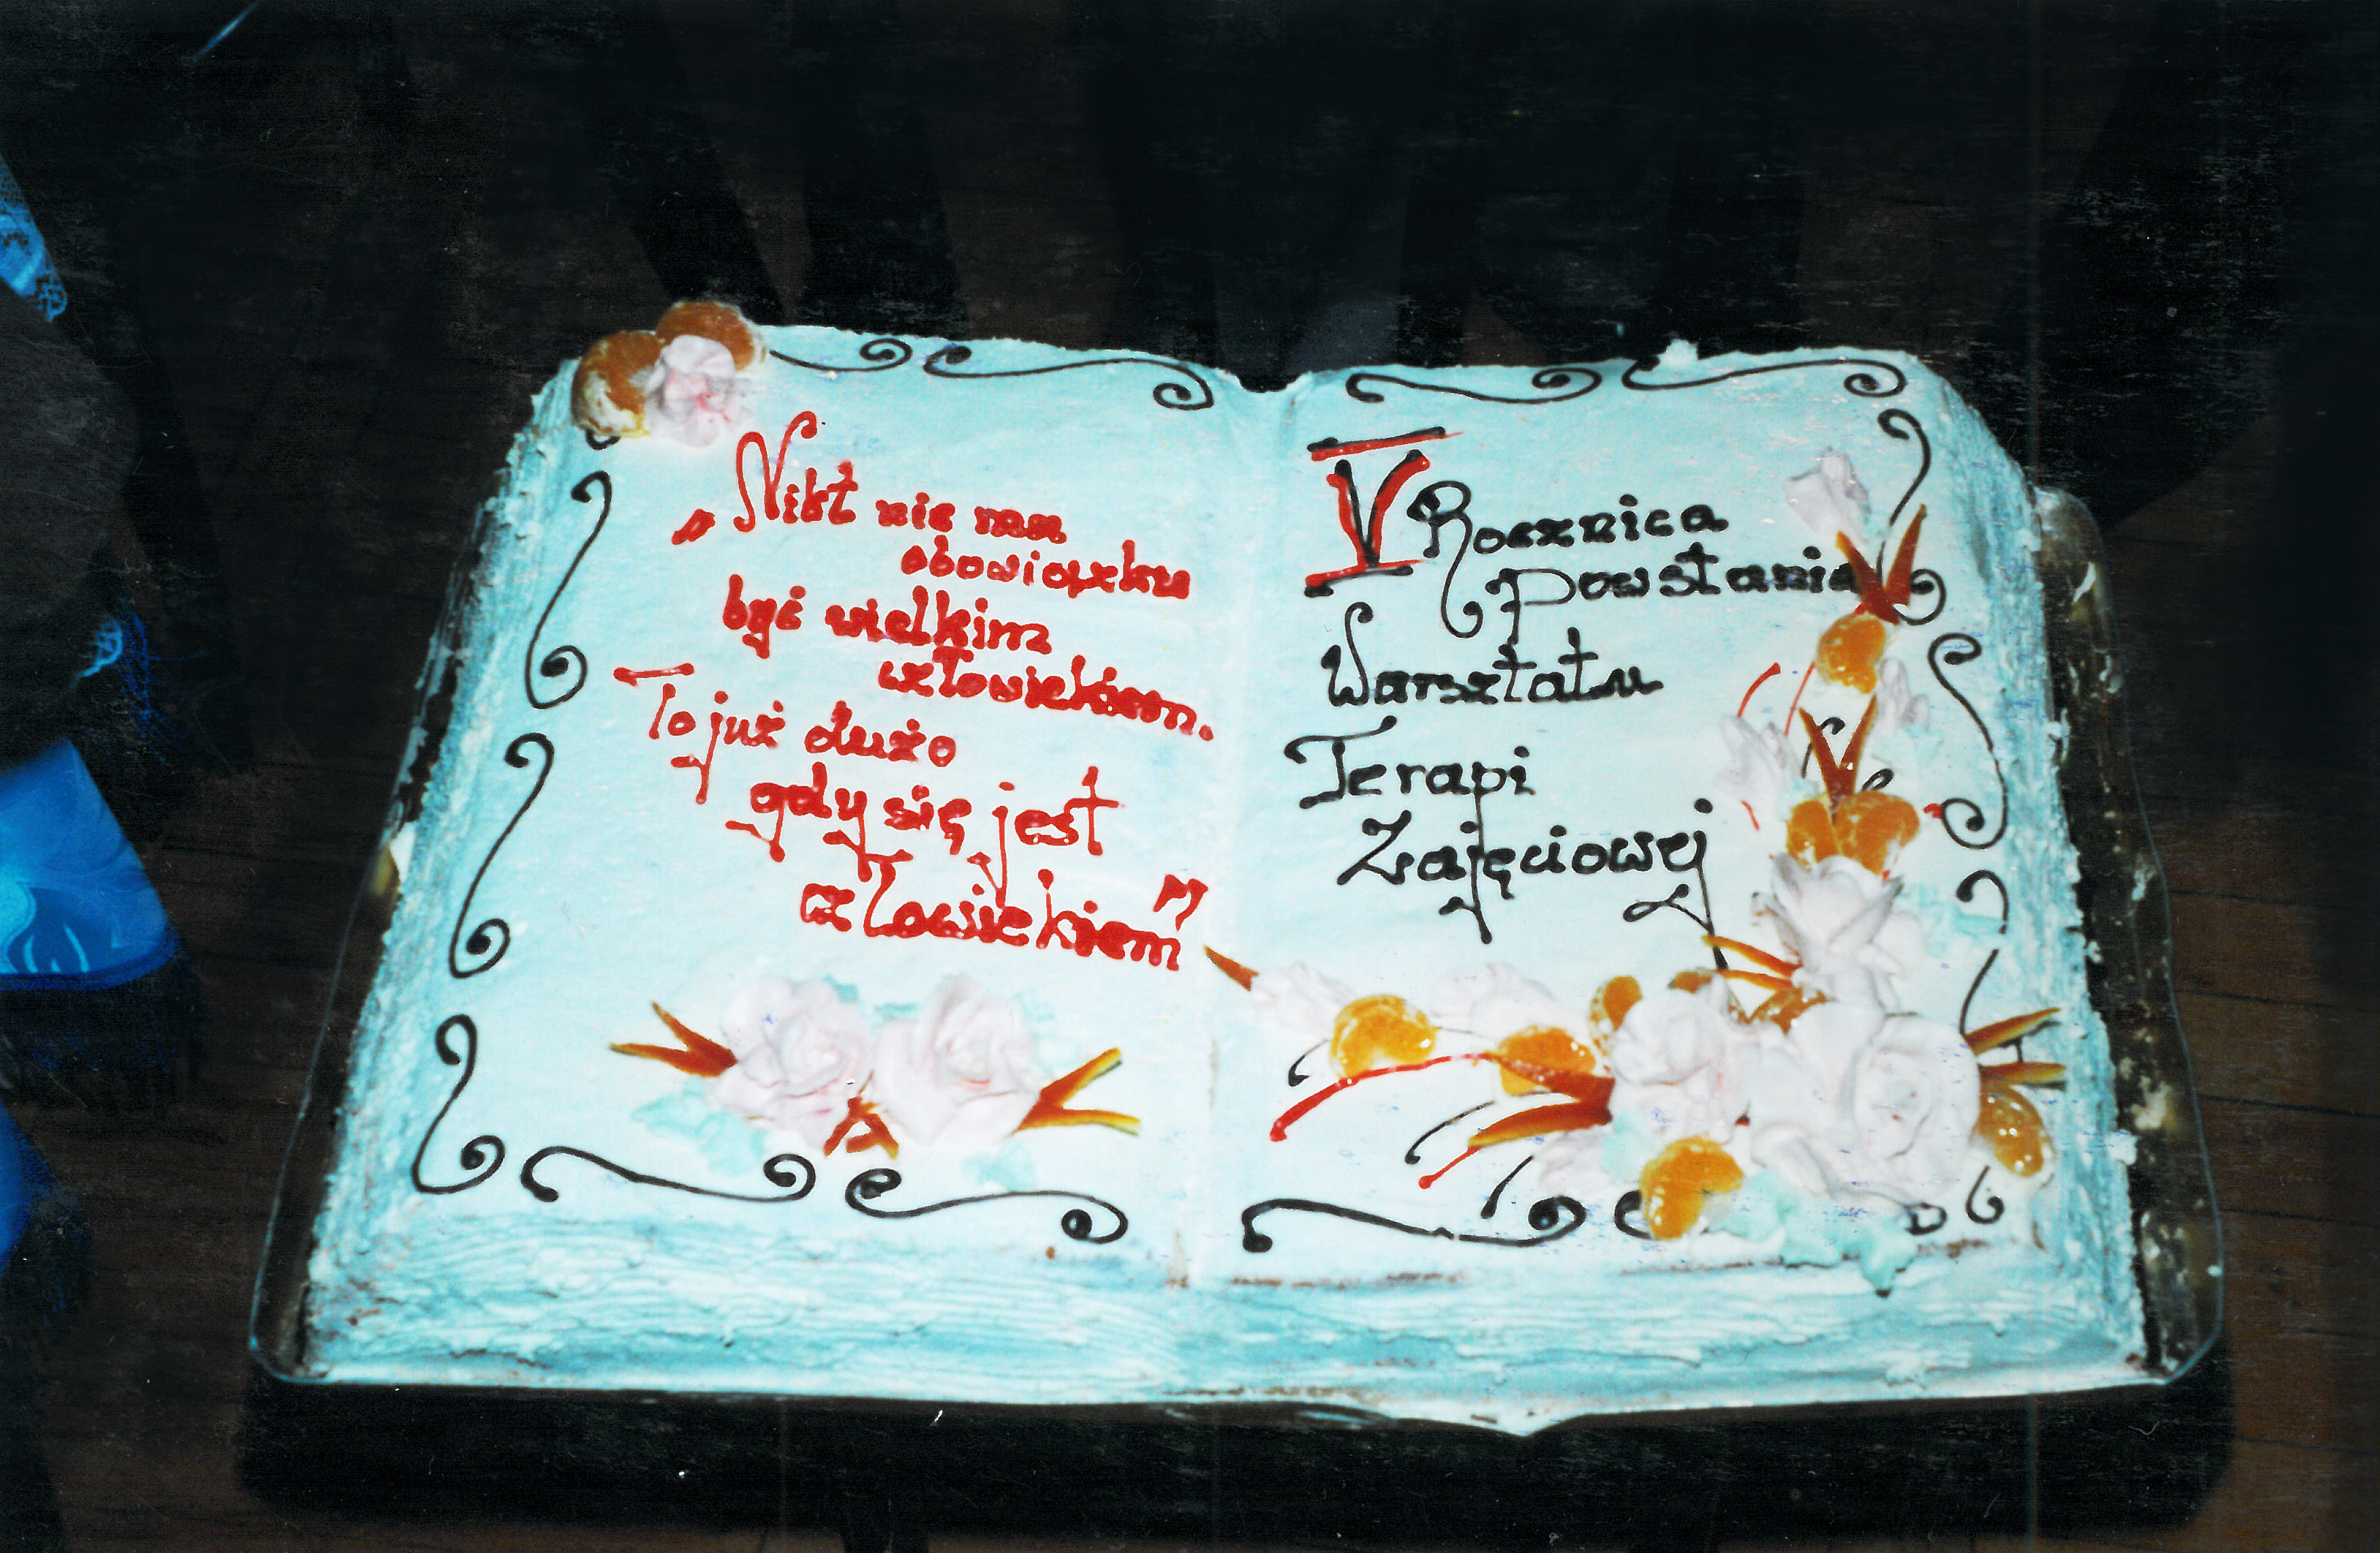 „Nikt nie ma
obowiązku
być wielkim
człowiekiem.
To już dużo
gdy się jest
człowiekiem"
V Rocznica
Powstania
Warsztatu
Terapi
Zajęciowej